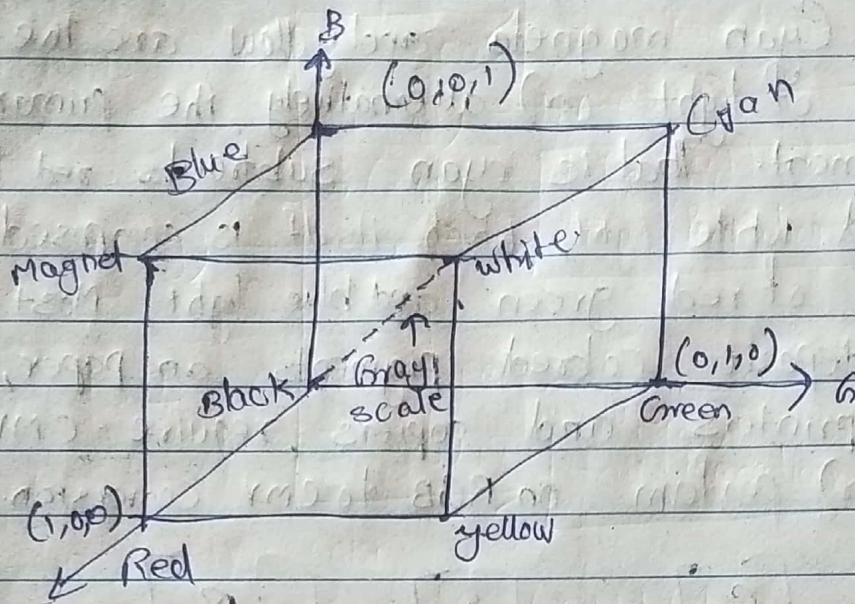 B
(0,0,1)
Cyan
Blue
Magnet
White
Black
Gray
scale
(0,1,0)
G
Green
(1,0,0)
Red
yellow